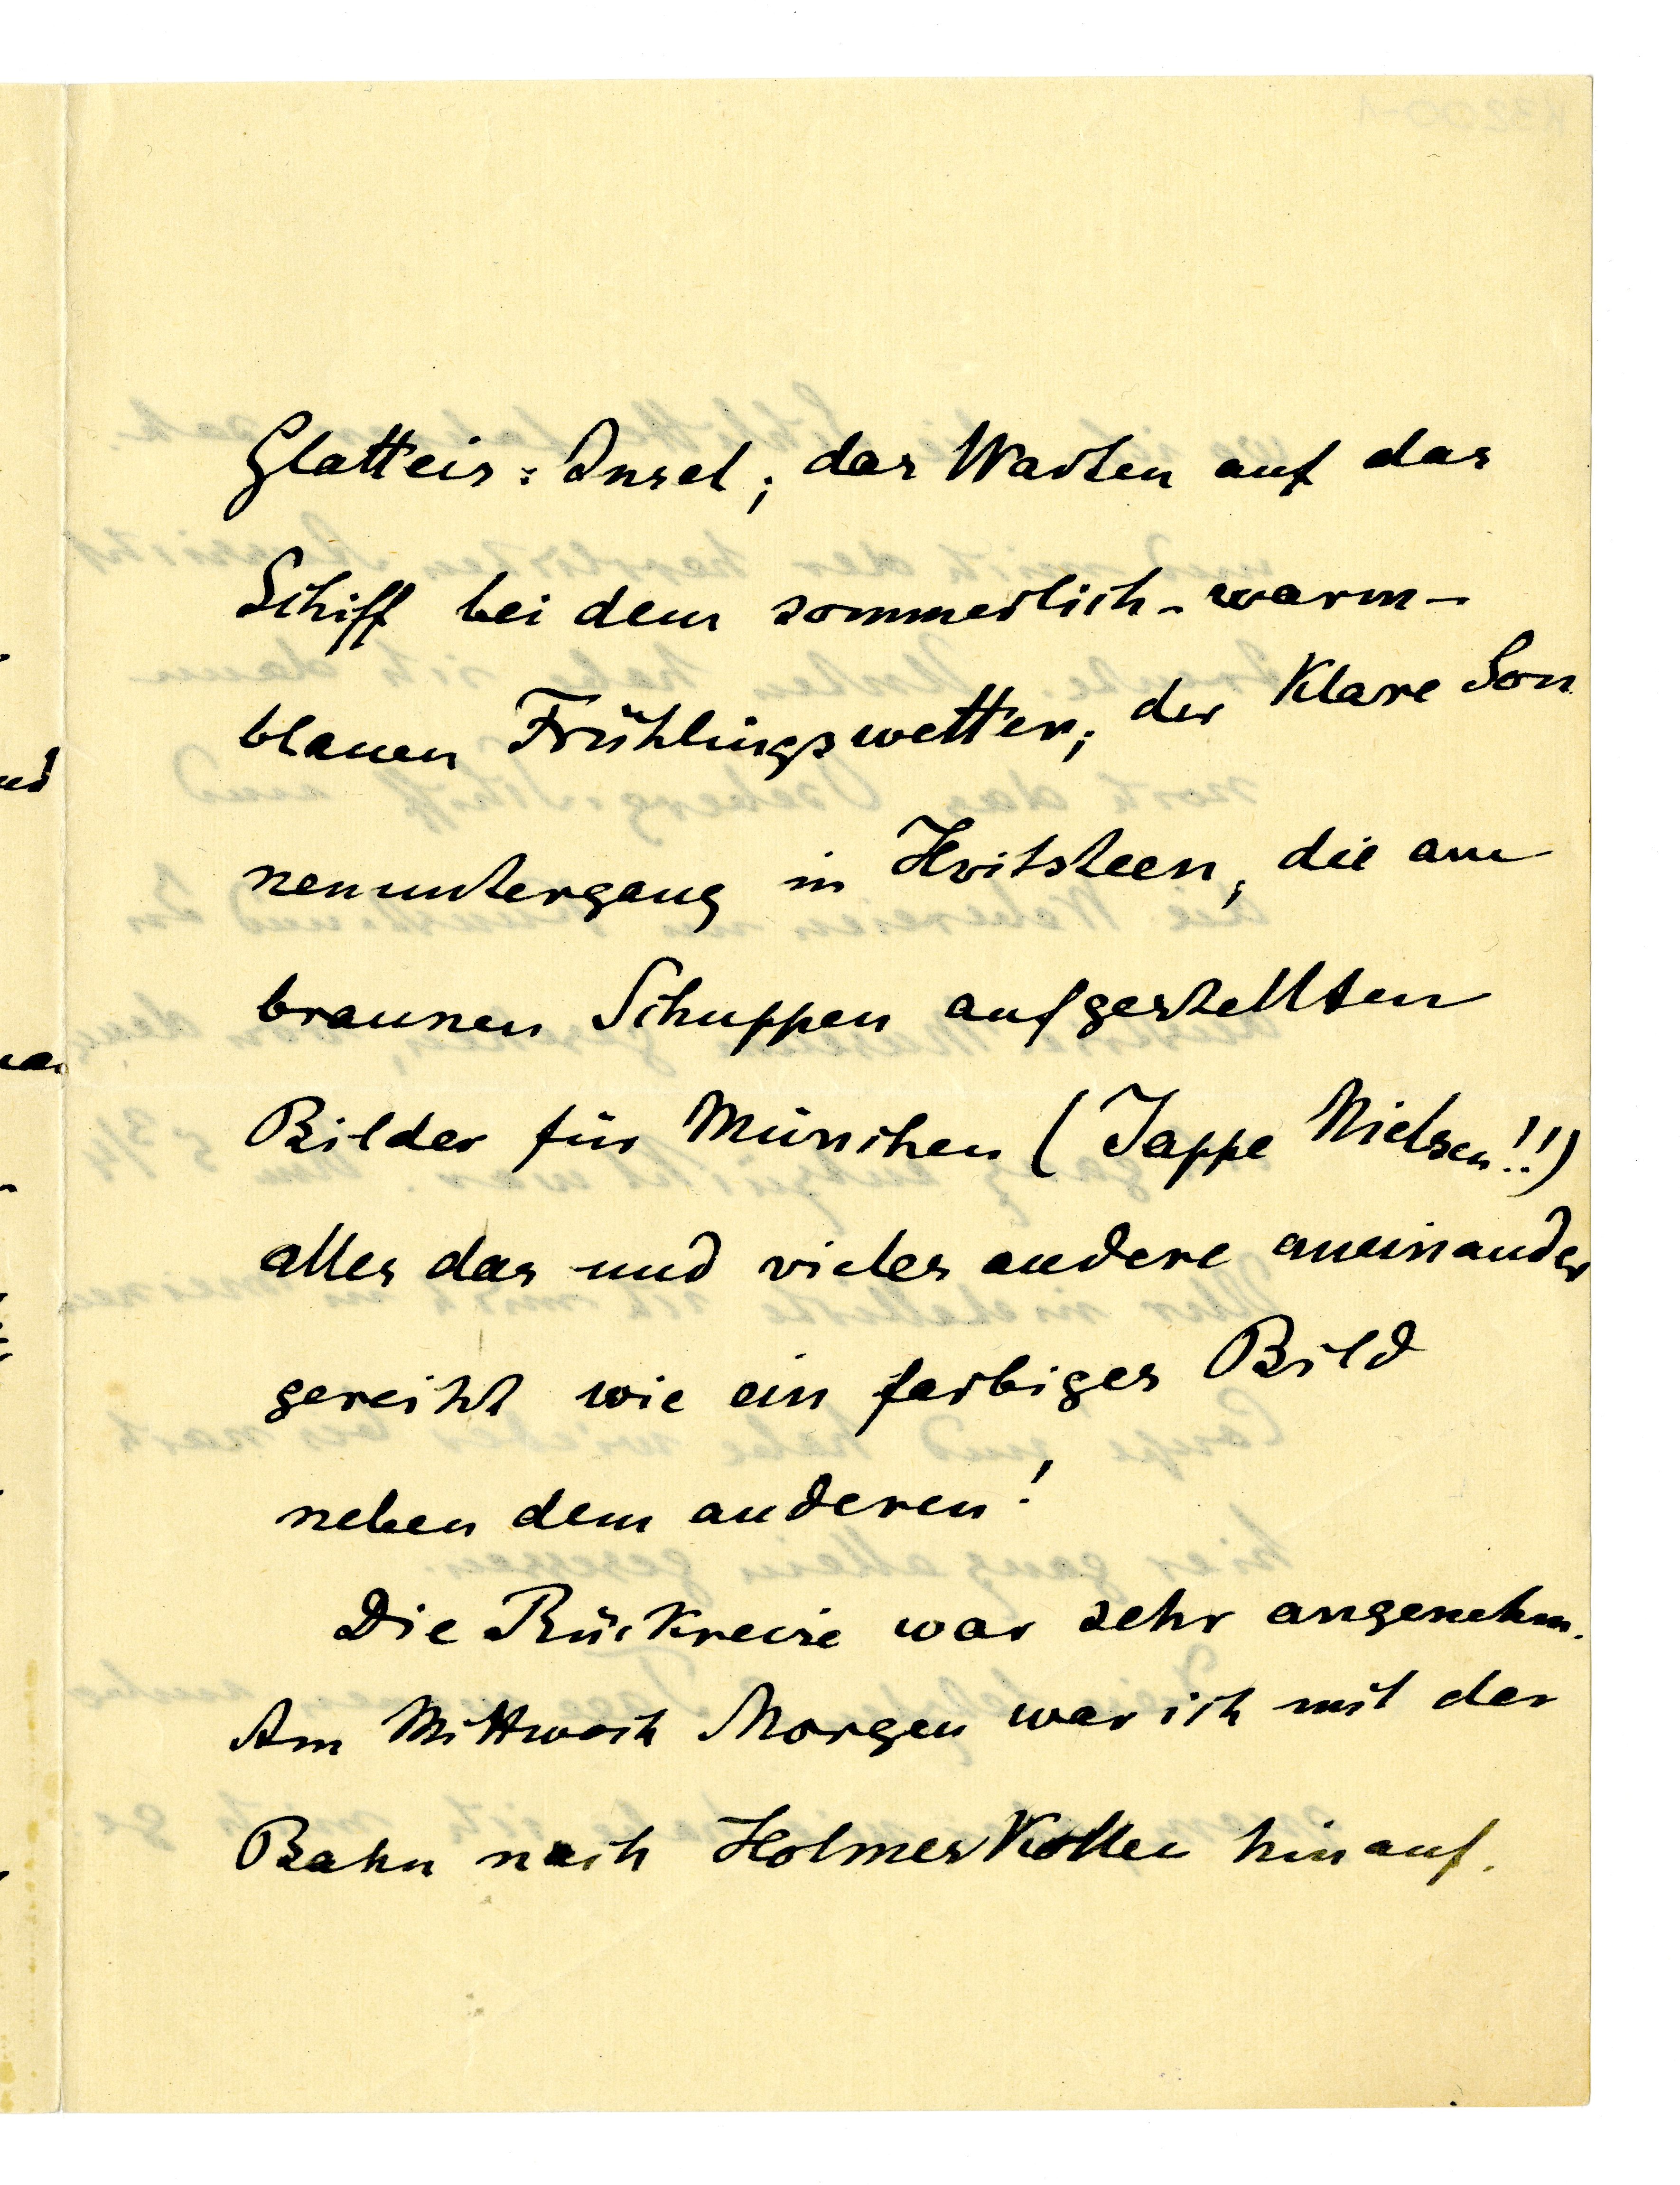 Glatteis=Insel; das Warten auf das
Schiff bei dem sommerlich-warm-
blauen Frühlingswetter; der klare Son
nenuntergang in Hvitsteen, die am
braunen Schuppen aufgestellten
Bilder für München (Jappe Nielsen!!)
alles das und vieles andere aneinander
gereiht wie ein farbiges Bild
neben dem anderen!
Die Rückreise war sehr angenehm.
Am Mittwoch Morgen war ich mit der
Bahn nach Holmenkollen hinauf.